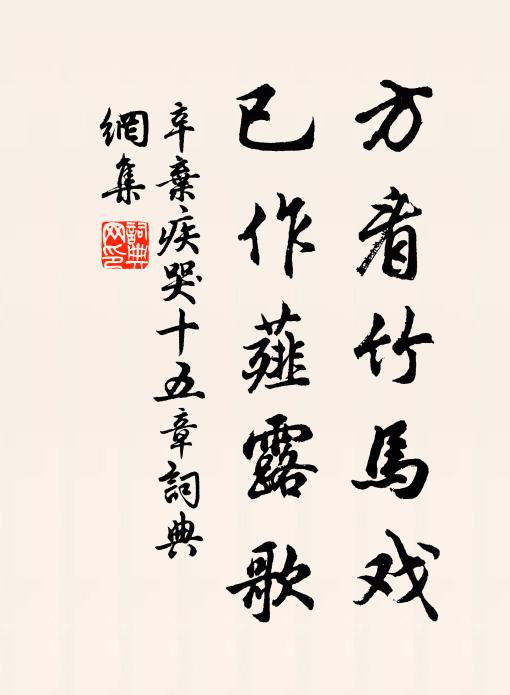 方看竹馬戏
已作薤露歌
辛棄疾哭十五章詞典
網集
詞典网印